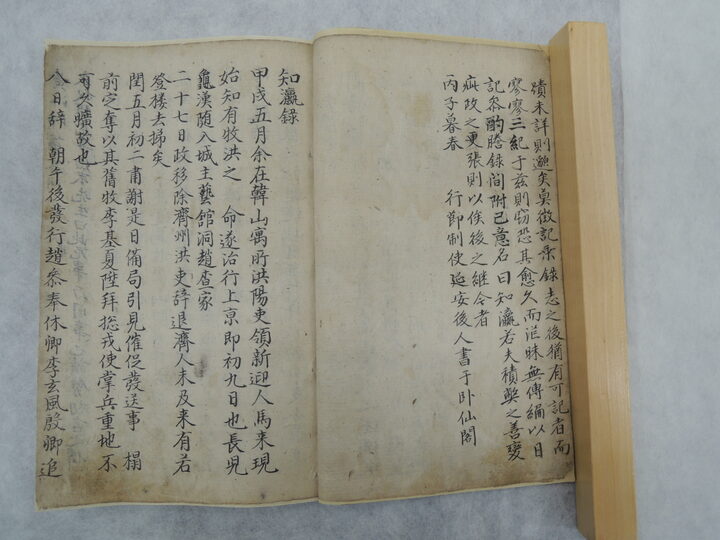 蹟未詳則邈矣莫徵記前錄志之後猶有可記者而
寥寥三紀于玆則窃恐其愈久而泯昧無傳編以日
記叅酌謄錄間附己意名曰知瀛若夫積弊之善變
疵政之更張則以俟後之繼今者
丙子暮春 行卽制使延安後人書于卧仙閣
知瀛錄
甲戌五月余在韓山寓所洪陽吏領新迎人馬來現
始知有牧洪之 命遂治行上京即初九日也長兒
龜漢随入城主藝舘洞趙査家
二十七日政移除濟州洪吏辞退濟人未及来有若
登楼去梯矣
閏五月初二肅謝是日備局引見催促發送事 榻
前定奪以其舊牧李基夏陞拜揔戎使掌兵重地不
可久曠故也
八日辞 朝午後發行趙叅奉休卿李玄風殷卿追